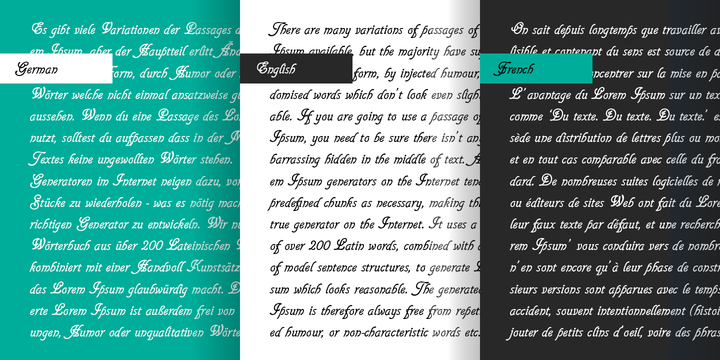 Es gibt viele Variationen der Passages d
em Ipsum, aber der Hauptteil erlitt Änd
German
form, durch Humor oder
Wörter welche nicht einmal ansatzweise gl
aussehen. Wenn du eine Passage des Lo
nutzt, solltest du aufpassen dass in der M
Textes keine ungewollten Wörter stehen.
Generatoren im Internet neigen dazu, vor
Stücke zu wiederholen - was es nötig mach
richtigen Generator zu entwickeln. Wir nu
Wörterbuch aus über 200 Lateinischen W
kombiniert mit einer Handvoll Kunstsätz
das Lorem Ipsum glaubwürdig macht. D
erte Lorem Ipsum ist außerdem frei von
ungen, Humor oder unqualitativen Wörte
There are many variations of passages of
Ipsum available, but the majority have su
English
form, by injected humour,
domised words which don't look even slight
able. If you are going to use a passage of
Ipsum, you need to be sure there isn't any
barrassing hidden in the middle of text. A
em Ipsum generators on the Internet tend
predefined chunks as necessary, making th
true generator on the Internet. It uses a
of over 200 Latin words, combined with a
of model sentence structures, to generate L
sum which looks reasonable. The generated
Ipsum is therefore always free from repet
ed humour, or non-characteristic words etc.
On sait depuis longtemps que travailler av
lisible et contenant du sens est source de d
French
ncentrer sur la mise en pa
L'avantage du Lorem Ipsum sur un tex
comme 'Du texte. Du texte. Du texte.' es
sède une distribution de lettres plus ou mo
et en tout cas comparable avec celle du fra
dard. De nombreuses suites logicielles de m
ou éditeurs de sites Web ont fait du Lore
leur faux texte par défaut, et une recherch
rem Ipsum' vous conduira vers de nombre
n'en sont encore qu'à leur phase de constr
sieurs versions sont apparues avec le temps
accident, souvent intentionnellement (histoi
jouter de petits clins d'oeil, voire des phras